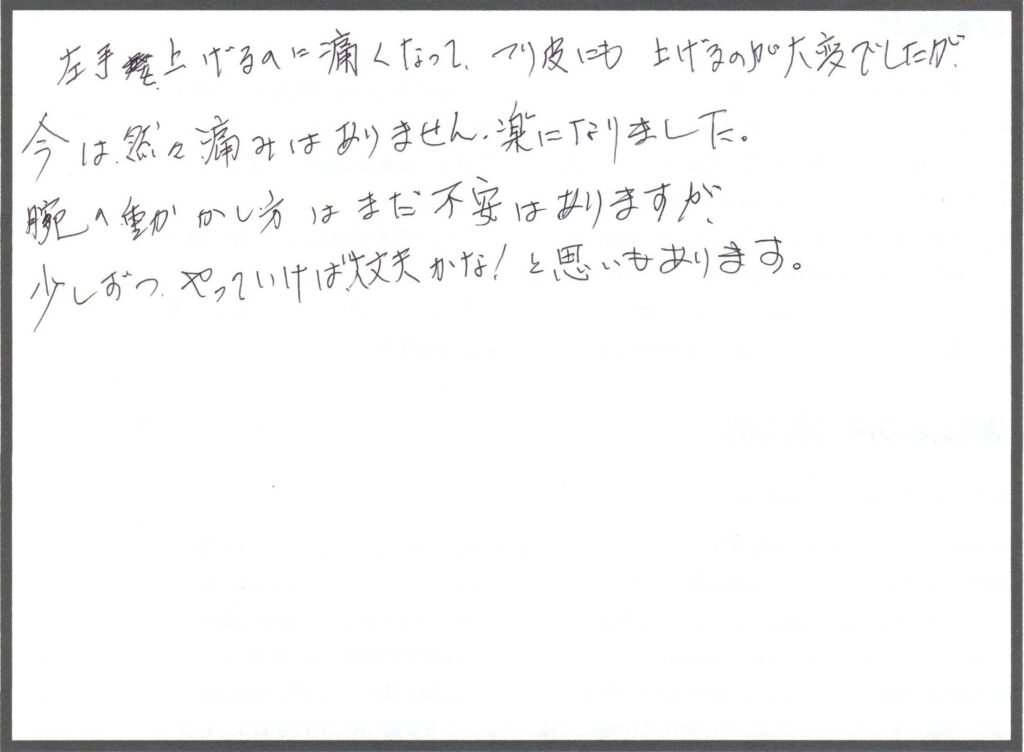 左手上げるのに痛くなって、つり皮にも 上げるのが大変でしたが、
今は、然々痛みはありません。楽になりました。
腕の動かかし方はまだ不安はありますが、
少しずつ、やっていけば大丈夫かな!と思いもあります。